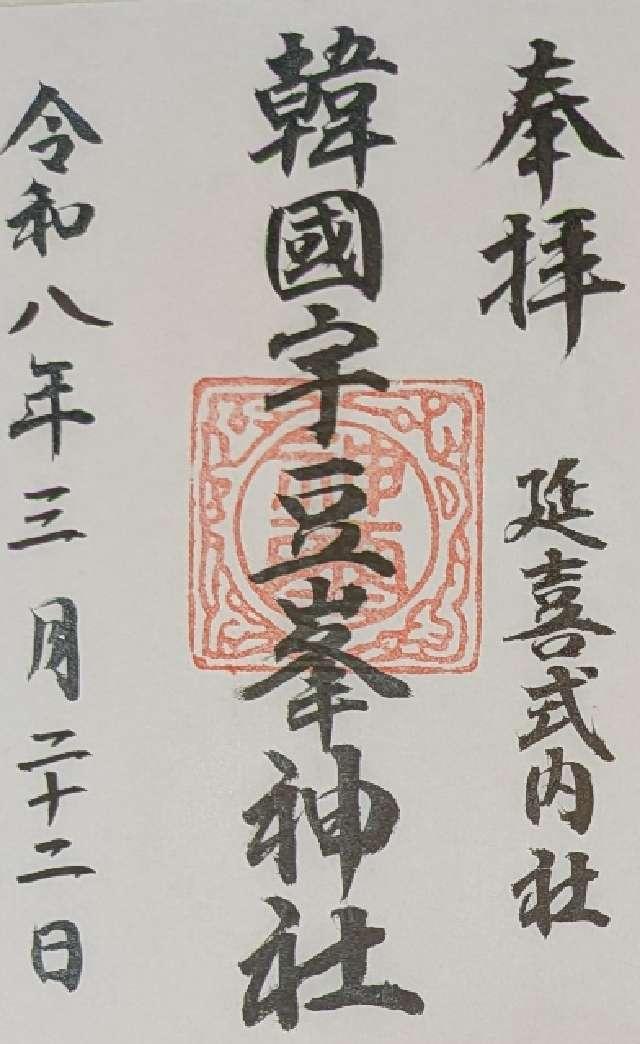 奉拝
延喜式内社
韓國宇豆峯神社
令和八年三月二十二日